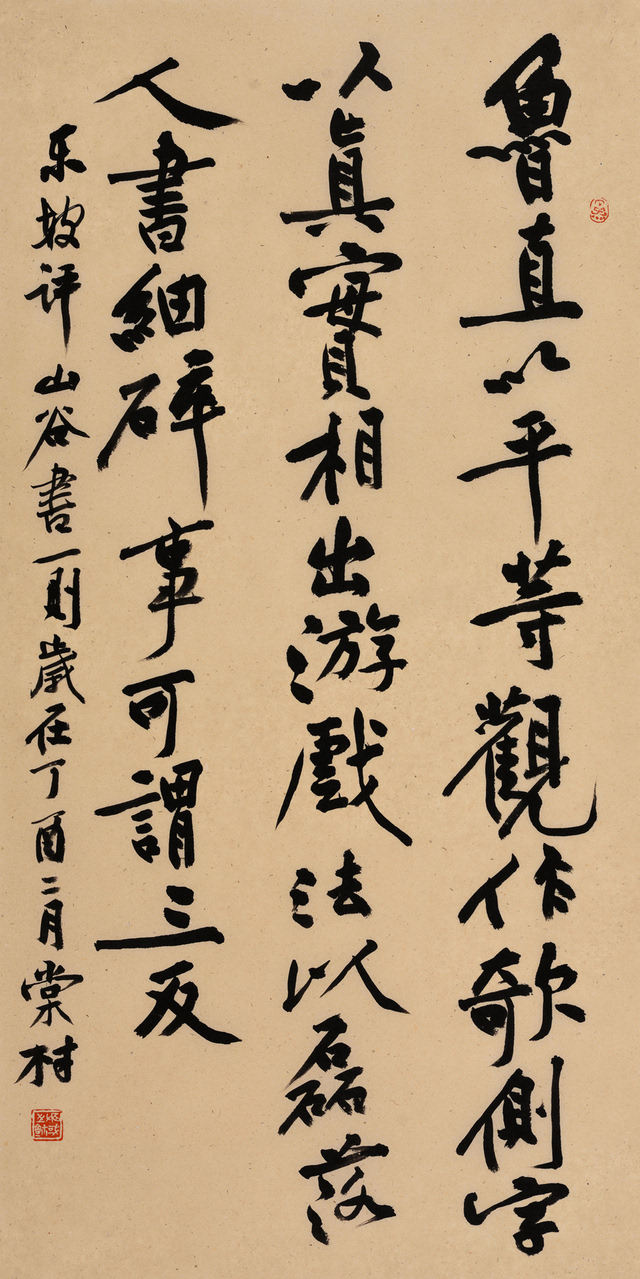 魯直以平等觀作欹側字
以真實相出游戲法以磊落
人書細碎事可謂三反
东坡评山谷書一則歲在丁酉二月棠村